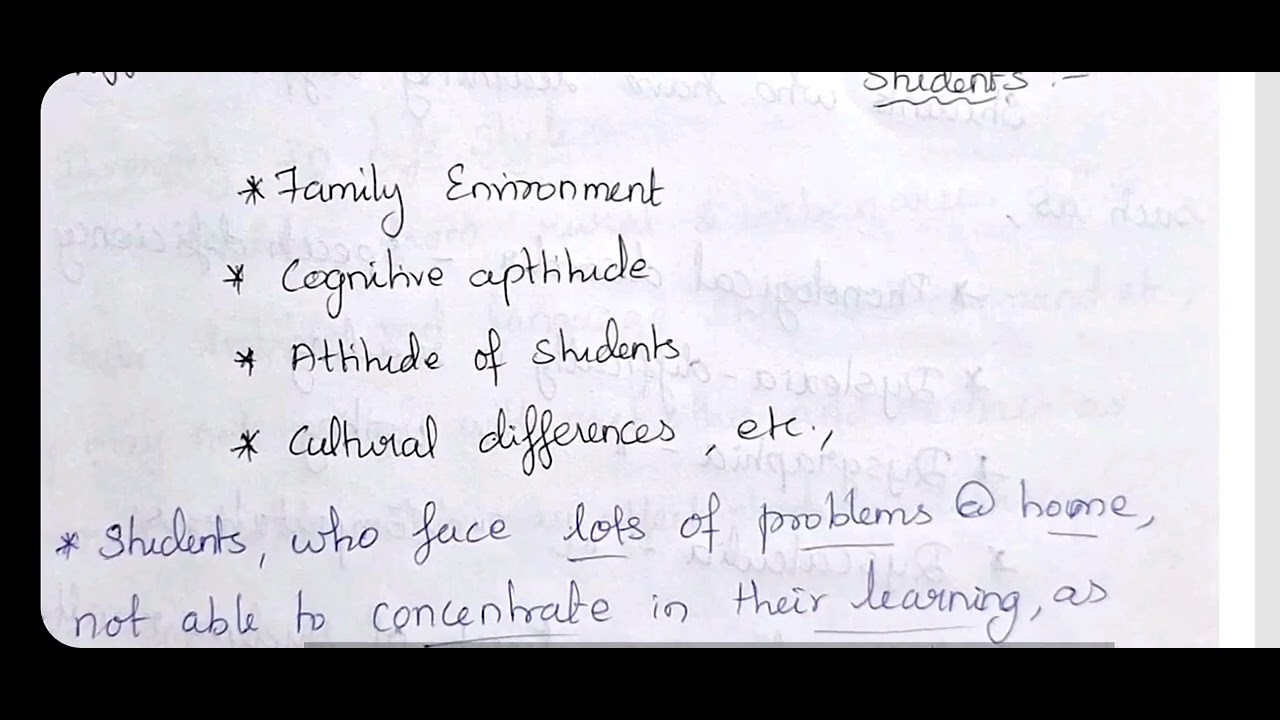 Students :-
* Family Environment
* Cognitive apttitude
* Attitude of students
* Cultural differences, etc.,
* Students, who face lots of problems @ home,
not able to concentrate in their learning, as